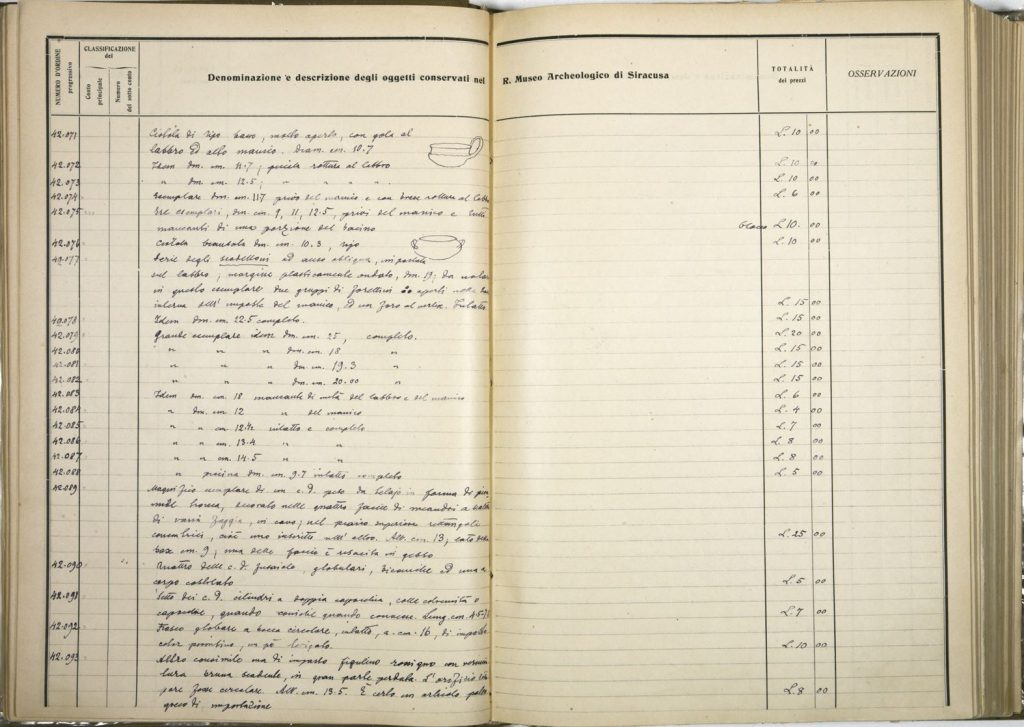 NUMERO D'ORDINE progressivo
CLASSIFICAZIONE del
Conto principale
Numero del sotto conto
Denominazione e descrizione degli oggetti conservati nel R. Museo Archeologico di Siracusa
TOTALITÀ dei prezzi
OSSERVAZIONI
42.071 Ciotola di tipo basso, molto aperto, con gola al
labbro ed alto manico. Diam. cm. 10.7 L. 10 00
42.072 Idem dm. cm. 11.7; piccola rottura al labbro L. 10 00
42.073 " dm. cm. 12.5; " " " " L. 10 00
42.074 Esemplare dm. cm. 11.7 privo del manico e con breve rottura al labbro L. 6 00
42.075 Tre esemplari, dm. cm. 9, 11, 12.5, privi del manico e tutti
mancanti di una porzione del bacino L. 10. 00
42.076 Ciotola biansata dm. cm. 10.3, tipo L. 10 00
42.077 Serie degli scodelloni ad ansa obliqua, impostata
sul labbro; margine plasticamente ondato, dm. 19; da notare
in questo esemplare due gruppi di forellini aperti nella
interna dell' imposta del manico, ed un foro al . Intatto L. 15 00
42.078 Idem dm. cm. 22.5 completo. L. 15 00
42.079 Grande esemplare idem dm. cm. 25, completo. L. 20 00
42.080 " " " dm. cm. 18 " L. 15 00
42.081 " " " dm. cm. 19.3 " L. 15 00
42.082 " " " dm. cm. 20.00 " L. 15 00
42.083 Idem dm. cm. 18 mancante di metà del labbro e del manico L. 6 00
42.084 " dm. cm. 12 " del manico L. 4 00
42.085 " " cm. 12 intatto e completo L. 7 00
42.086 " " cm. 13.4 " " L. 8 00
42.087 " " cm. 14.5 " " L. 8 00
42.088 " piccina dm. cm. 9.7 intatto completo L. 5 00
42.089 Magnifico esemplare di un c. d. peso da telajo in forma di
tronca, decorato nelle quattro faccie di meandri a
di varia foggia, in cavo; nel piano superiore rettangoli
concentrici, cioè uno inscritto nell' altro. Alt. cm. 13; lato della
base cm. 9; una delle faccie è rifatta in gesso L. 25 00
42.090 Quattro delle c. d. fusaiole, globulari, biconiche ed una a
corpo L. 5 00
42.091 Sette dei c. d. cilindri a doppia capocchia, colle estremità o
capocchie, quando coniche quando convesse. Lung. cm. L. 7 00
42.092 Fiasco globare a bocca circolare, intatto, a. cm. 16, di impasto
color , un pò levigato. L. 10 00
42.093 Altro consimile ma di impasto figulino rossigno con
tura bruna scadente, in gran parte perduta. L'orifizio
pare fosse circolare. Alt. cm. 13.5. È certo un articolo
greco di importazione L. 8 00